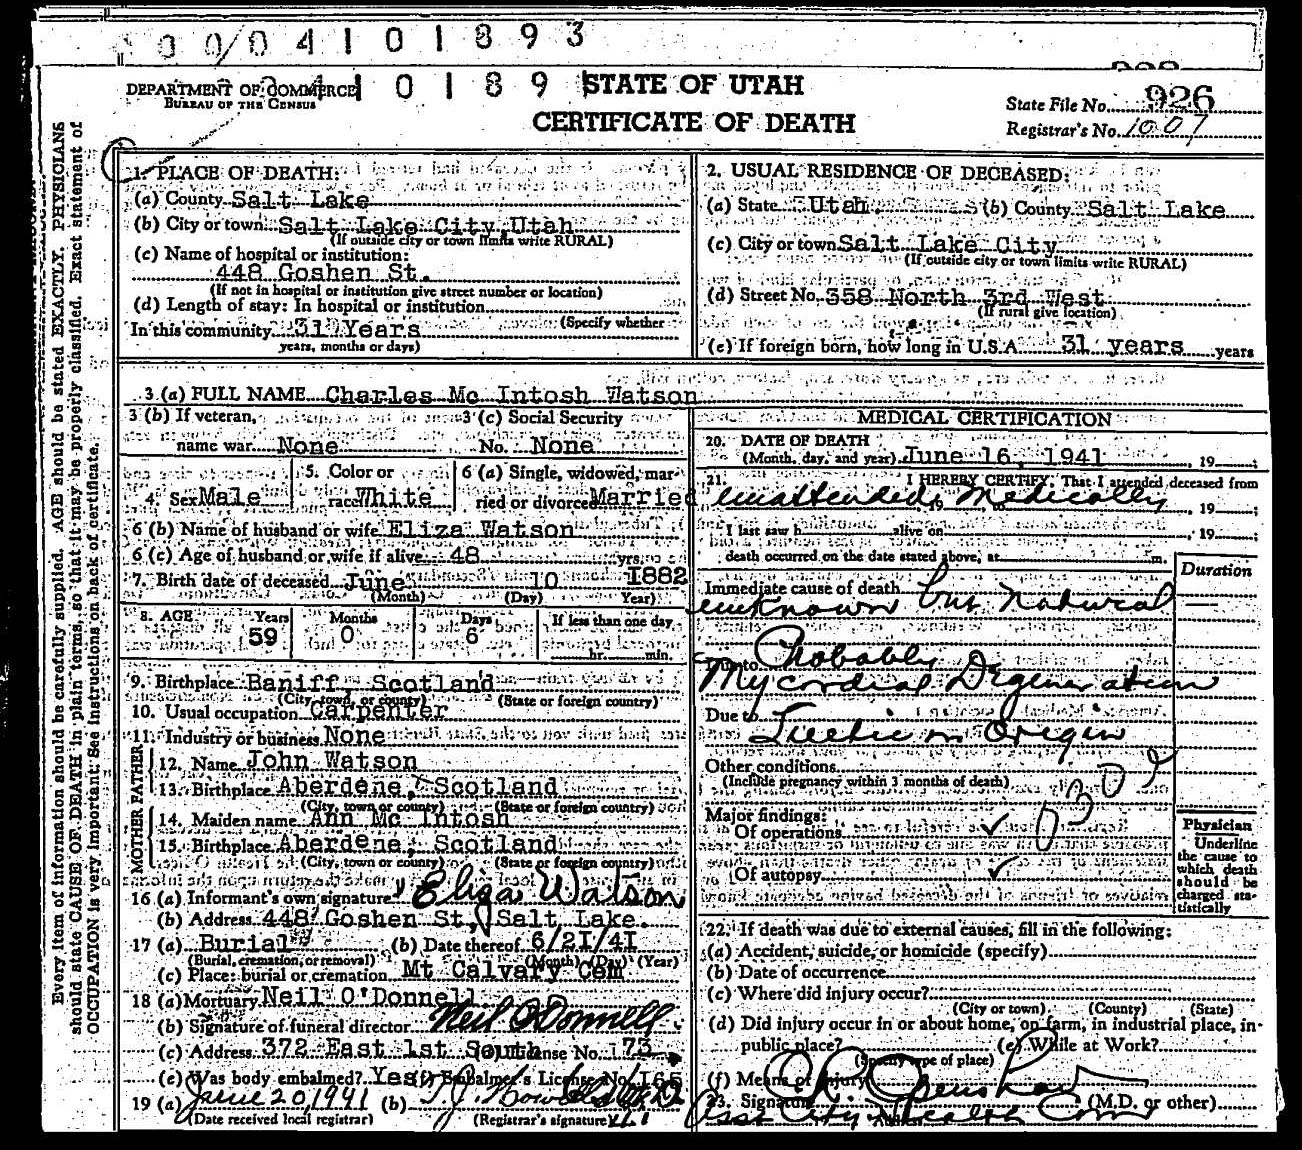 0004101893
DEPARTMENT OF COMMERCE
BUREAU OF THE CENSUS
STATE OF UTAH
CERTIFICATE OF DEATH
State File No. 926
Registrar's No. 1007
Every item of information should be carefully supplied. AGE should be stated EXACTLY. PHYSICIANS
should state CAUSE OF DEATH in plain terms, so that it may be properly classified. Exact statement of
OCCUPATION is very important. See instructions on back of certificate.
1. PLACE OF DEATH:
(a) County Salt Lake
(b) City or town Salt Lake City, Utah
(If outside city or town limits write RURAL)
(c) Name of hospital or institution:
448 Goshen St.
(If not in hospital or institution give street number or location)
(d) Length of stay: In hospital or institution
(Specify whether
In this community 31 Years
years, months or days)
2. USUAL RESIDENCE OF DECEASED:
(a) State Utah (b) County Salt Lake
(c) City or town Salt Lake City
(If outside city or town limits write RURAL)
(d) Street No. 358 North 3rd West
(If rural give location)
(e) If foreign born, how long in U.S.A. 31 years years
3 (a) FULL NAME Charles Mc Intosh Watson
3 (b) If veteran,
name war None
3 (c) Social Security
No. None
4. Sex Male
5. Color or
race White
6 (a) Single, widowed, mar
ried or divorced Married
6 (b) Name of husband or wife Eliza Watson
6 (c) Age of husband or wife if alive 48 yrs.
7. Birth date of deceased June 10 1882
(Month) (Day) Year)
8. AGE Years Months Days If less than one day
59 0 6 hr. min.
9. Birthplace Baniff, Scotland
(City, town, or county) (State or foreign country)
10. Usual occupation Carpenter
11. Industry or business None
FATHER
12. Name John Watson
13. Birthplace Aberdene, Scotland
(City, town or county) (State or foreign country)
MOTHER
14. Maiden name Ann Mc Intosh
15. Birthplace Aberdene, Scotland
(City, town or county) (State or foreign country)
16 (a) Informant's own signature Eliza Watson
(b) Address 448 Goshen St, Salt Lake.
17 (a) Burial (b) Date thereof 6/21/41
(Burial, cremation, or removal) (Month) (Day) (Year)
(c) Place: burial or cremation Mt Calvary Cem
18 (a) Mortuary Neil O'Donnell
(b) Signature of funeral director Neil O'Donnell
(c) Address 372 East 1st South License No. 73
(e) Was body embalmed? Yes (f) Embalmer's License No. 165
19 (a) June 20, 1941 (b)
(Date received local registrar) (Registrar's signature)
MEDICAL CERTIFICATION
20. DATE OF DEATH
(Month, day, and year) June 16, 1941, 19
21. I HEREBY CERTIFY, That I attended deceased from
unattended Medically, 19 ;
I last saw h alive on , 19 ;
death occurred on the date stated above, at m.
Duration
Immediate cause of death
unknown but natural
Due to Probably
Mycordial Degeneration
Due to
Luetic in Origin
Other conditions
(Include pregnancy within 3 months of death)
030
Major findings:
Of operations
Of autopsy
Physician
Underline
the cause to
which death
should be
charged sta-
tistically
22. If death was due to external causes, fill in the following:
(a) Accident, suicide, or homicide (specify)
(b) Date of occurrence
(c) Where did injury occur?
(City or town) (County) (State)
(d) Did injury occur in or about home, on farm, in industrial place, in
public place? (e) While at Work?
(Specify type of place)
(f) Means of injury
23. Signature (M.D. or other)
Asst City Health Com